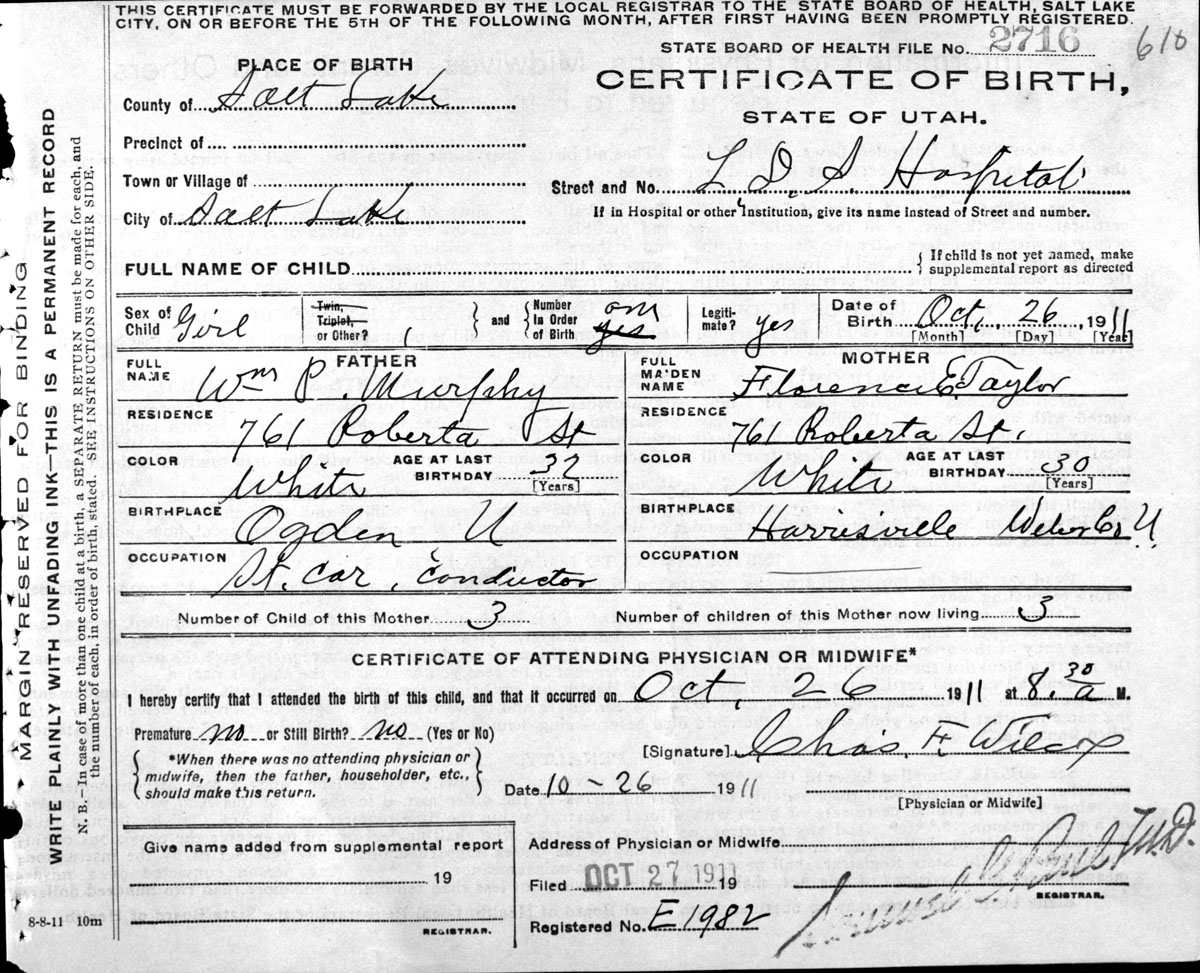 THIS CERTIFICATE MUST BE FORWARDED BY THE LOCAL REGISTRAR TO THE STATE BOARD OF HEALTH, SALT LAKE
CITY, ON OR BEFORE THE 5TH OF THE FOLLOWING MONTH, AFTER FIRST HAVING BEEN PROMPTLY REGISTERED.
STATE BOARD OF HEALTH FILE No. 2716
610
PLACE OF BIRTH
CERTIFICATE OF BIRTH,
STATE OF UTAH.
County of Salt Lake
Precinct of
Town or Village of
Street and No. L. D. S. Hospital
City of Salt Lake
If in Hospital or other Institution, give its name instead of Street and number.
FULL NAME OF CHILD
{ If child is not yet named, make
supplemental report as directed
Sex of Child Girl
Twin, Triplet, or Other? 1
and { Number In Order of Birth yes one
Legiti-mate? yes
Date of Birth Oct. 26, 1911
[Month] [Day] [Year]
FATHER
FULL NAME Wm P. Murphy
MOTHER
FULL MAIDEN NAME Florence E. Taylor
RESIDENCE 761 Roberta St
RESIDENCE 761 Roberta St.
COLOR White AGE AT LAST BIRTHDAY 32 [Years]
COLOR White AGE AT LAST BIRTHDAY 30 [Years]
BIRTHPLACE Ogden U
BIRTHPLACE Harrisville Weber Co U.
OCCUPATION St. Car. Conductor
OCCUPATION
Number of Child of this Mother 3
Number of children of this Mother now living 3
CERTIFICATE OF ATTENDING PHYSICIAN OR MIDWIFE*
I hereby certify that I attended the birth of this child, and that it occurred on Oct. 26 1911 at 8.30 a M.
Premature no or Still Birth? no (Yes or No)
[Signature] Chas. F. Wilcox
{ *When there was no attending physician or
midwife, then the father, householder, etc.,
should make this return. }
Date 10-26 1911
[Physician or Midwife]
Give name added from supplemental report
19
REGISTRAR.
Address of Physician or Midwife
Filed OCT 27 1911 19
M.D.
REGISTRAR.
Registered No. E1982
8-8-11 10m
MARGIN RESERVED FOR BINDING
WRITE PLAINLY WITH UNFADING INK—THIS IS A PERMANENT RECORD
N. B.—In case of more than one child at a birth, a SEPARATE RETURN must be made for each, and
the number of each, in order of birth, stated. SEE INSTRUCTIONS ON OTHER SIDE.